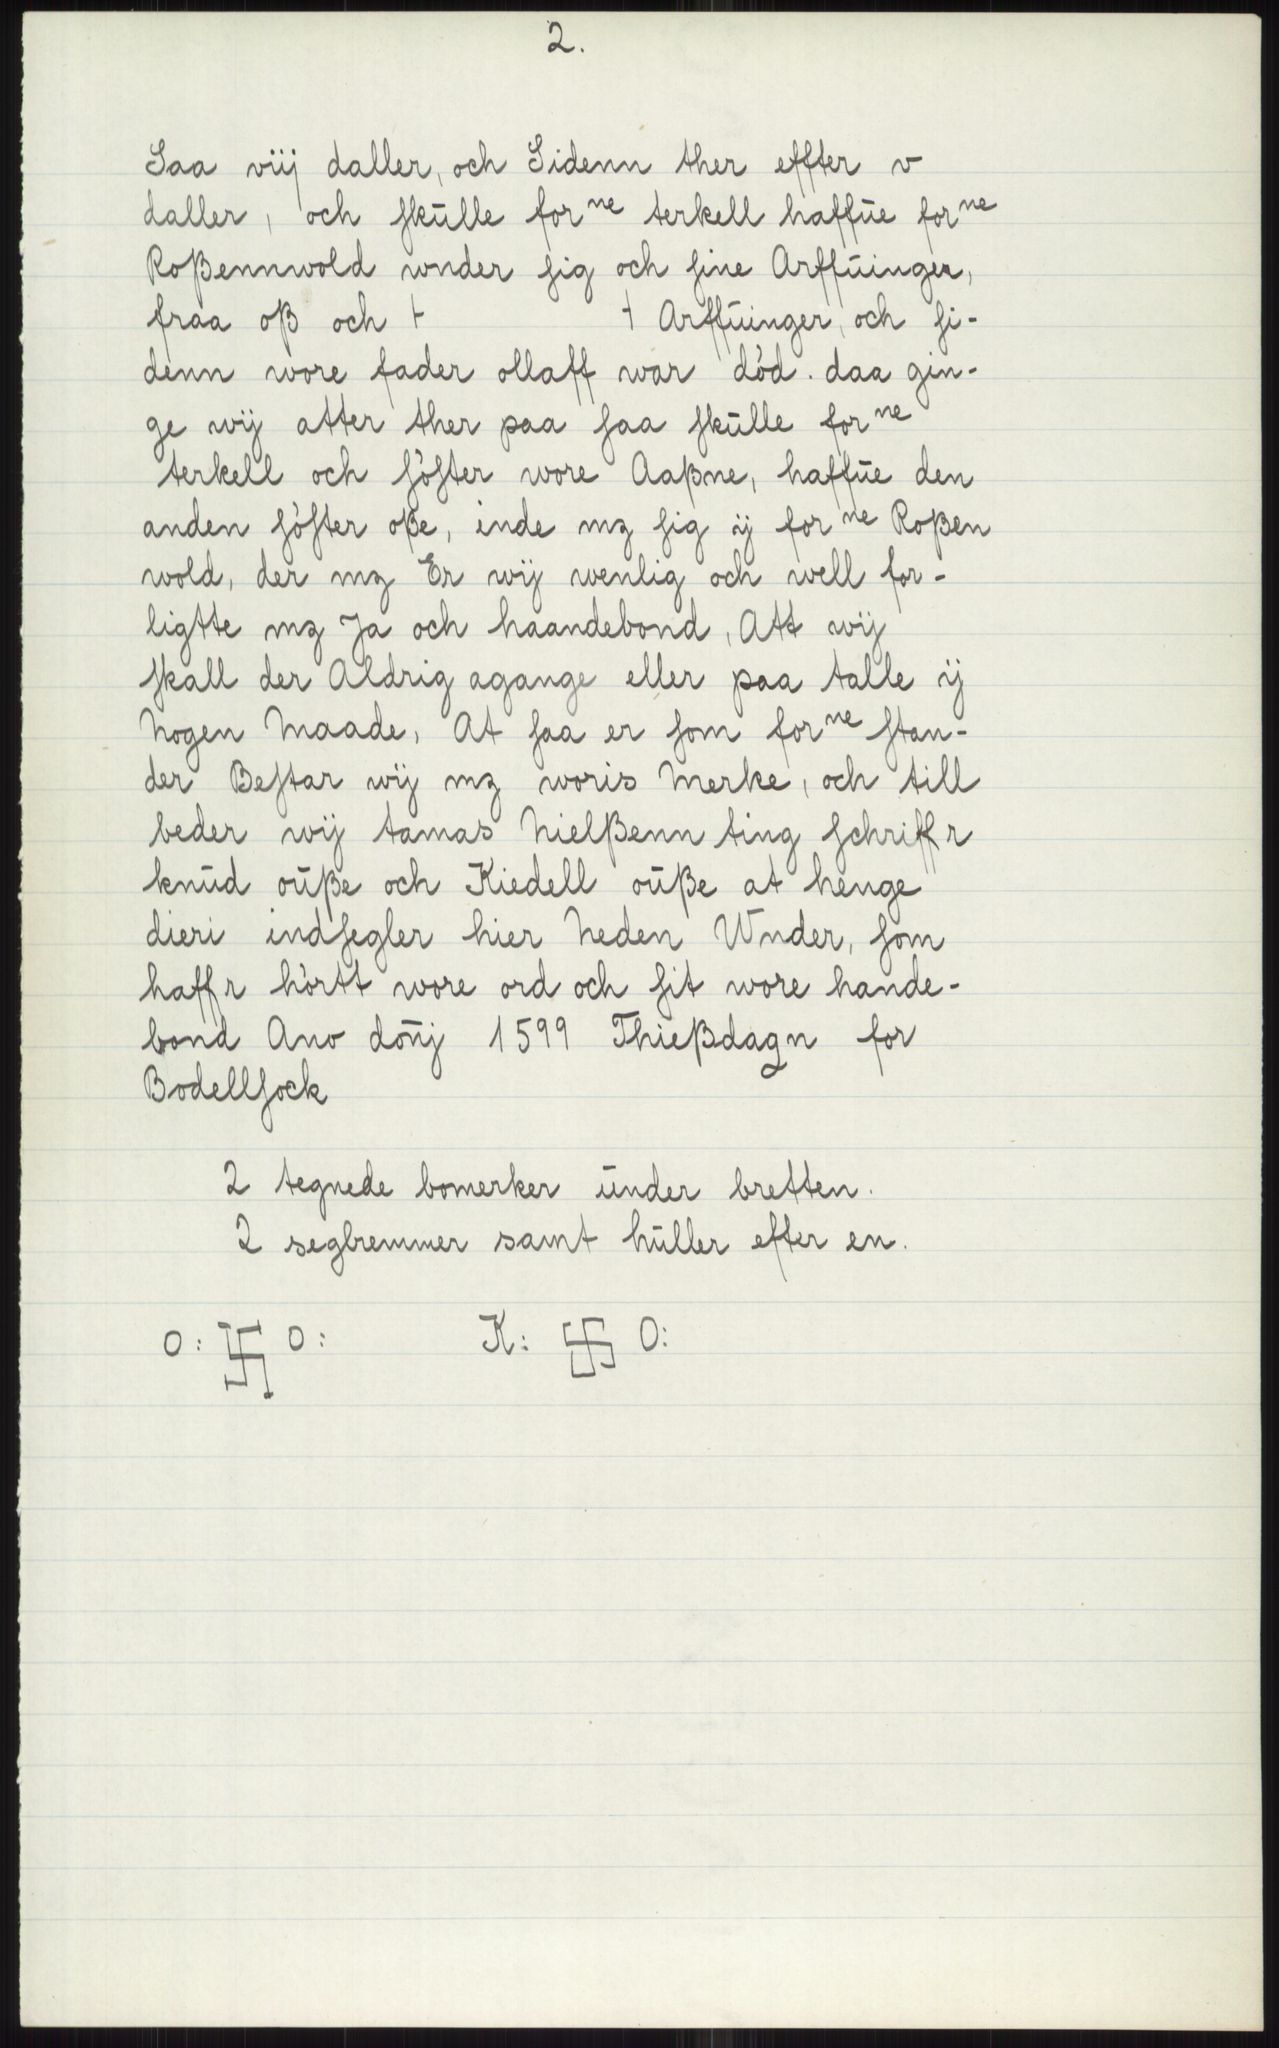 2.
Saa viij daller, och Sidenn ther effter v
daller, och skulle for ne terkell haffue for ne
Roßennwold wnder sig och sine Arffuinger,
fraa oß och + + Arffuinger, och si-
denn wore fader ollaff war död. daa gin-
ge wij atter ther paa saa skulle for ne
terkell och söster wore Aaßne, haffue den
anden söster oße, inde mz sig ij for ne Roßen
wold, der mz Er wij wenlig och well for-
ligtte mz Ja och haandebond, Att wij
skall der Aldrig agange eller paa talle ij
Nogen Maade, At saa er som for ne stan-
der Bestar wij mz woris Merke, och till
beder wij tamas Nielßenn ting schriffr
knud oüße och Kiedell oüße at henge
dieri indsegler hier Neden Wnder, som
haffr hörtt wore ord och sit wore hande-
bond Ano dōnj 1599 Thießdagn for
Bodellsock
2 tegnede bomerker under bretten.
2 seglremmer samt huller efter en.
O: 卐 O: K: 卐 O: